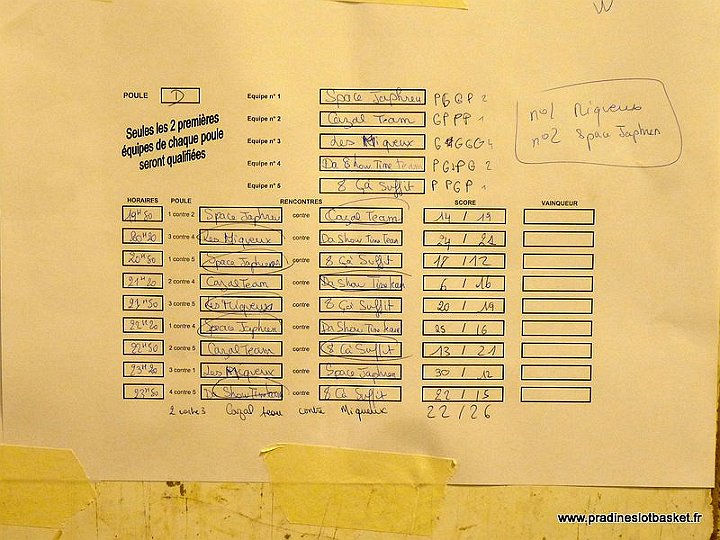 POULE D
Seules les 2 premières
équipes de chaque poule
seront qualifiées
Equipe n° 1 Space Japhren PGGP 2
Equipe n° 2 Cazal Team GPPP 1
Equipe n° 3 Les Miqueux GGGG 4
Equipe n° 4 Da Show Time team PGPG 2
Equipe n° 5 8 Çà Suffit PPGP 1
no1 Miqueux
no2 Space Japhren
HORAIRES POULE RENCONTRES SCORE VAINQUEUR
19H50 1 contre 2 Space Japhren contre Cazal Team 14 / 19
20H20 3 contre 4 Les Miqueux contre Da Show Time Team 24 / 21
20H50 1 contre 5 Space Japhrens contre 8 Çà Suffit 17 / 12
21H20 2 contre 4 Cazal Team contre Da Show Time team 6 / 16
21H50 3 contre 5 Les Miqueux contre 8 Çà Suffit 20 / 19
22H20 1 contre 4 Space Japhren contre Da Show Time team 25 / 16
22H50 2 contre 5 Cazal Team contre 8 Çà Suffit 13 / 21
23H20 3 contre 1 Les Miqueux contre Space Japhren 30 / 12
23H50 4 contre 5 Da Show Time team contre 8 Çà Suffit 22 / 15
2 contre 3 Cazal team contre Miqueux 22 / 26
www.pradineslotbasket.fr